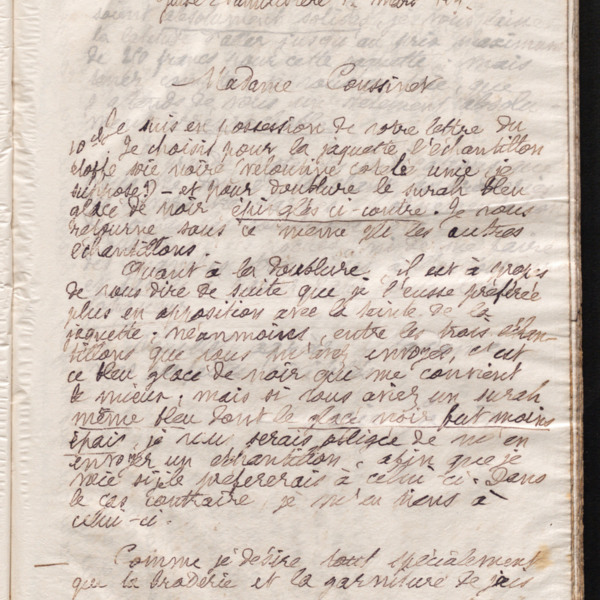 mars
Madame Coussinet
Je suis en possession de votre lettre du
10 ct Je choisis pour la jaquette l'échantillon
étoffe soie noire veloutine cordelé unie (je
suppose?) – et pour doublure le surah bleu
glacé de noir épinglés ci-contre. Je vous
retourne sous ce même pli les autres
échantillons.
Quant à la doublure, il est à propos
de vous dire de suite que je l'eusse préférée
plus en opposition avec la teinte de la
jaquette; néanmoins, entre les trois échan-
tillons que vous m'avez envoyés, c'est
ce bleu glacé de noir qui me convient
le mieux; mais si vous aviez un surah
même bleu dont le glacé noir fut moins
épais, je vous serais obligée de m'en
envoyer un échantillon, afin que je
voie si je le préfèrerais à celui-ci. Dans
le cas contraire, je m'en tiens à
celui-ci.
— Comme je désire tout spécialement
que la broderie et la garniture de jais